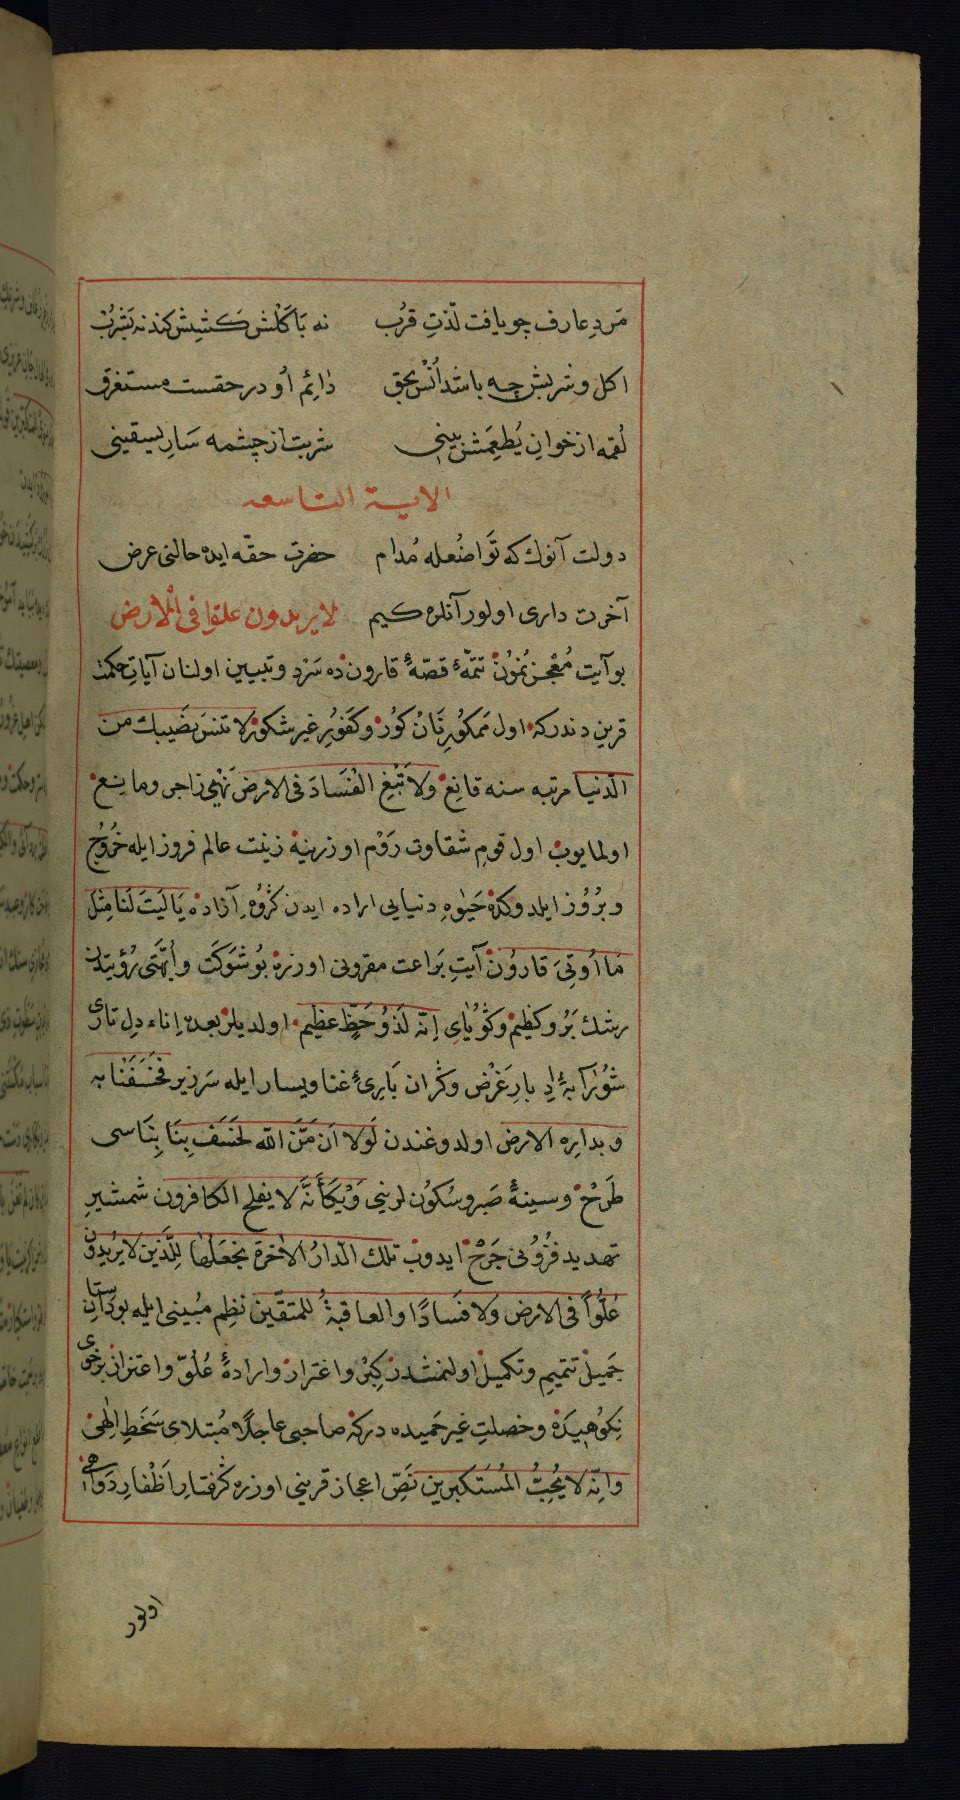 مَردِ عارف چو یافت لذّتِ قرُب نه بَاكْلَش كَشِش كند نه بَشُربْ
اكل و شربش چه باشد اُنْس بحق دٰائِم اُو در حقست مستغرق
لُقمه از خوانِ يُطعِمَش بینی شربت از چشمه سَارِ يسقينى
الایة التاسعه
دولت آنوك كه تَواضُعله مُدام حضرت حقّه ایده حالنی عرض
آخرت داری اولور آنلره كیم لایریدون علوّا فی الارض
بو آیت مُعْجز نُمُون تتمّهٔ قصّهٔ قارون ده سَرد و تبیین اولنان آیاتِ حكمت
قرین دندركه اول مَمكُورِ و كَفُورِ غیر شكور لا تنسَ نصَیبك من
الدّنیا مرتبه سنه قانِع ولاَ تَبْغِ الْفَسَادَ فی الارض نَهْیِ زاجر و مانع
اولمایوب اول قومِ شقاوت رَوْم اوزرنیه زینت عالم فروز ایله خُروُج
و برُوُز ایلدوكده حَیٰوةِ دنیایی اراده ایدن كُروُهِ آزاده یَا لَیَتَ لَنَا مِثلَ
مَا اُوتِیَ قارُوُن آیتِ بَراعت مقرونی اوزره بوُ شَوَكَت و اُبَّهَتی رُؤیتدن
رشك بَرُ و كظیم و كُوُیٰایِ اِنّه لَذُوُ حَظٍّ عظیم اولدیلر بعده اِناء دِل تاری
بارِ غَرَض و كران بَارِیِٔ غنا و یسار ایله سَرزیر فَخَسَفْنا به
و بدارِه الارض اولدوغندن لَولا اَن مَنَّ اللّه لخَسَف بِنَا بِنَاسی
طَرَحْ و سینهٔ صَبر و سُكوُن لرینی وَیْكَأَنَّه لا یفلح الكافرون شمشیرِ
تهدید فزُوُنی جَرحْ ایدوب تلك الدّارُ الاٰخرة نجعَلُها لِلّذین لا یرُیدون
عُلُوّاً فی الارض وَلا فَسَادًا والعاقبةُ للمتقّین نظِم مُبینی ایله بو داستانِ
جَمیل تتمیم و تكمیل اولنمشدر كِبْر و اغترار و ارادهٔ عُلُوّ و اعتزاز برخوی
نِكوُهیدَه و خصلتِ غیر حَمیده دركه صاحبی عاجلًا مُبتلای سَخَطِ اِلٰهی
وانّه لا یُحِبُّ المُستكبرین نَصِّ اعجاز قرینی اوزره كُرفتارِ اَظْفارِ دَواهی
اولور